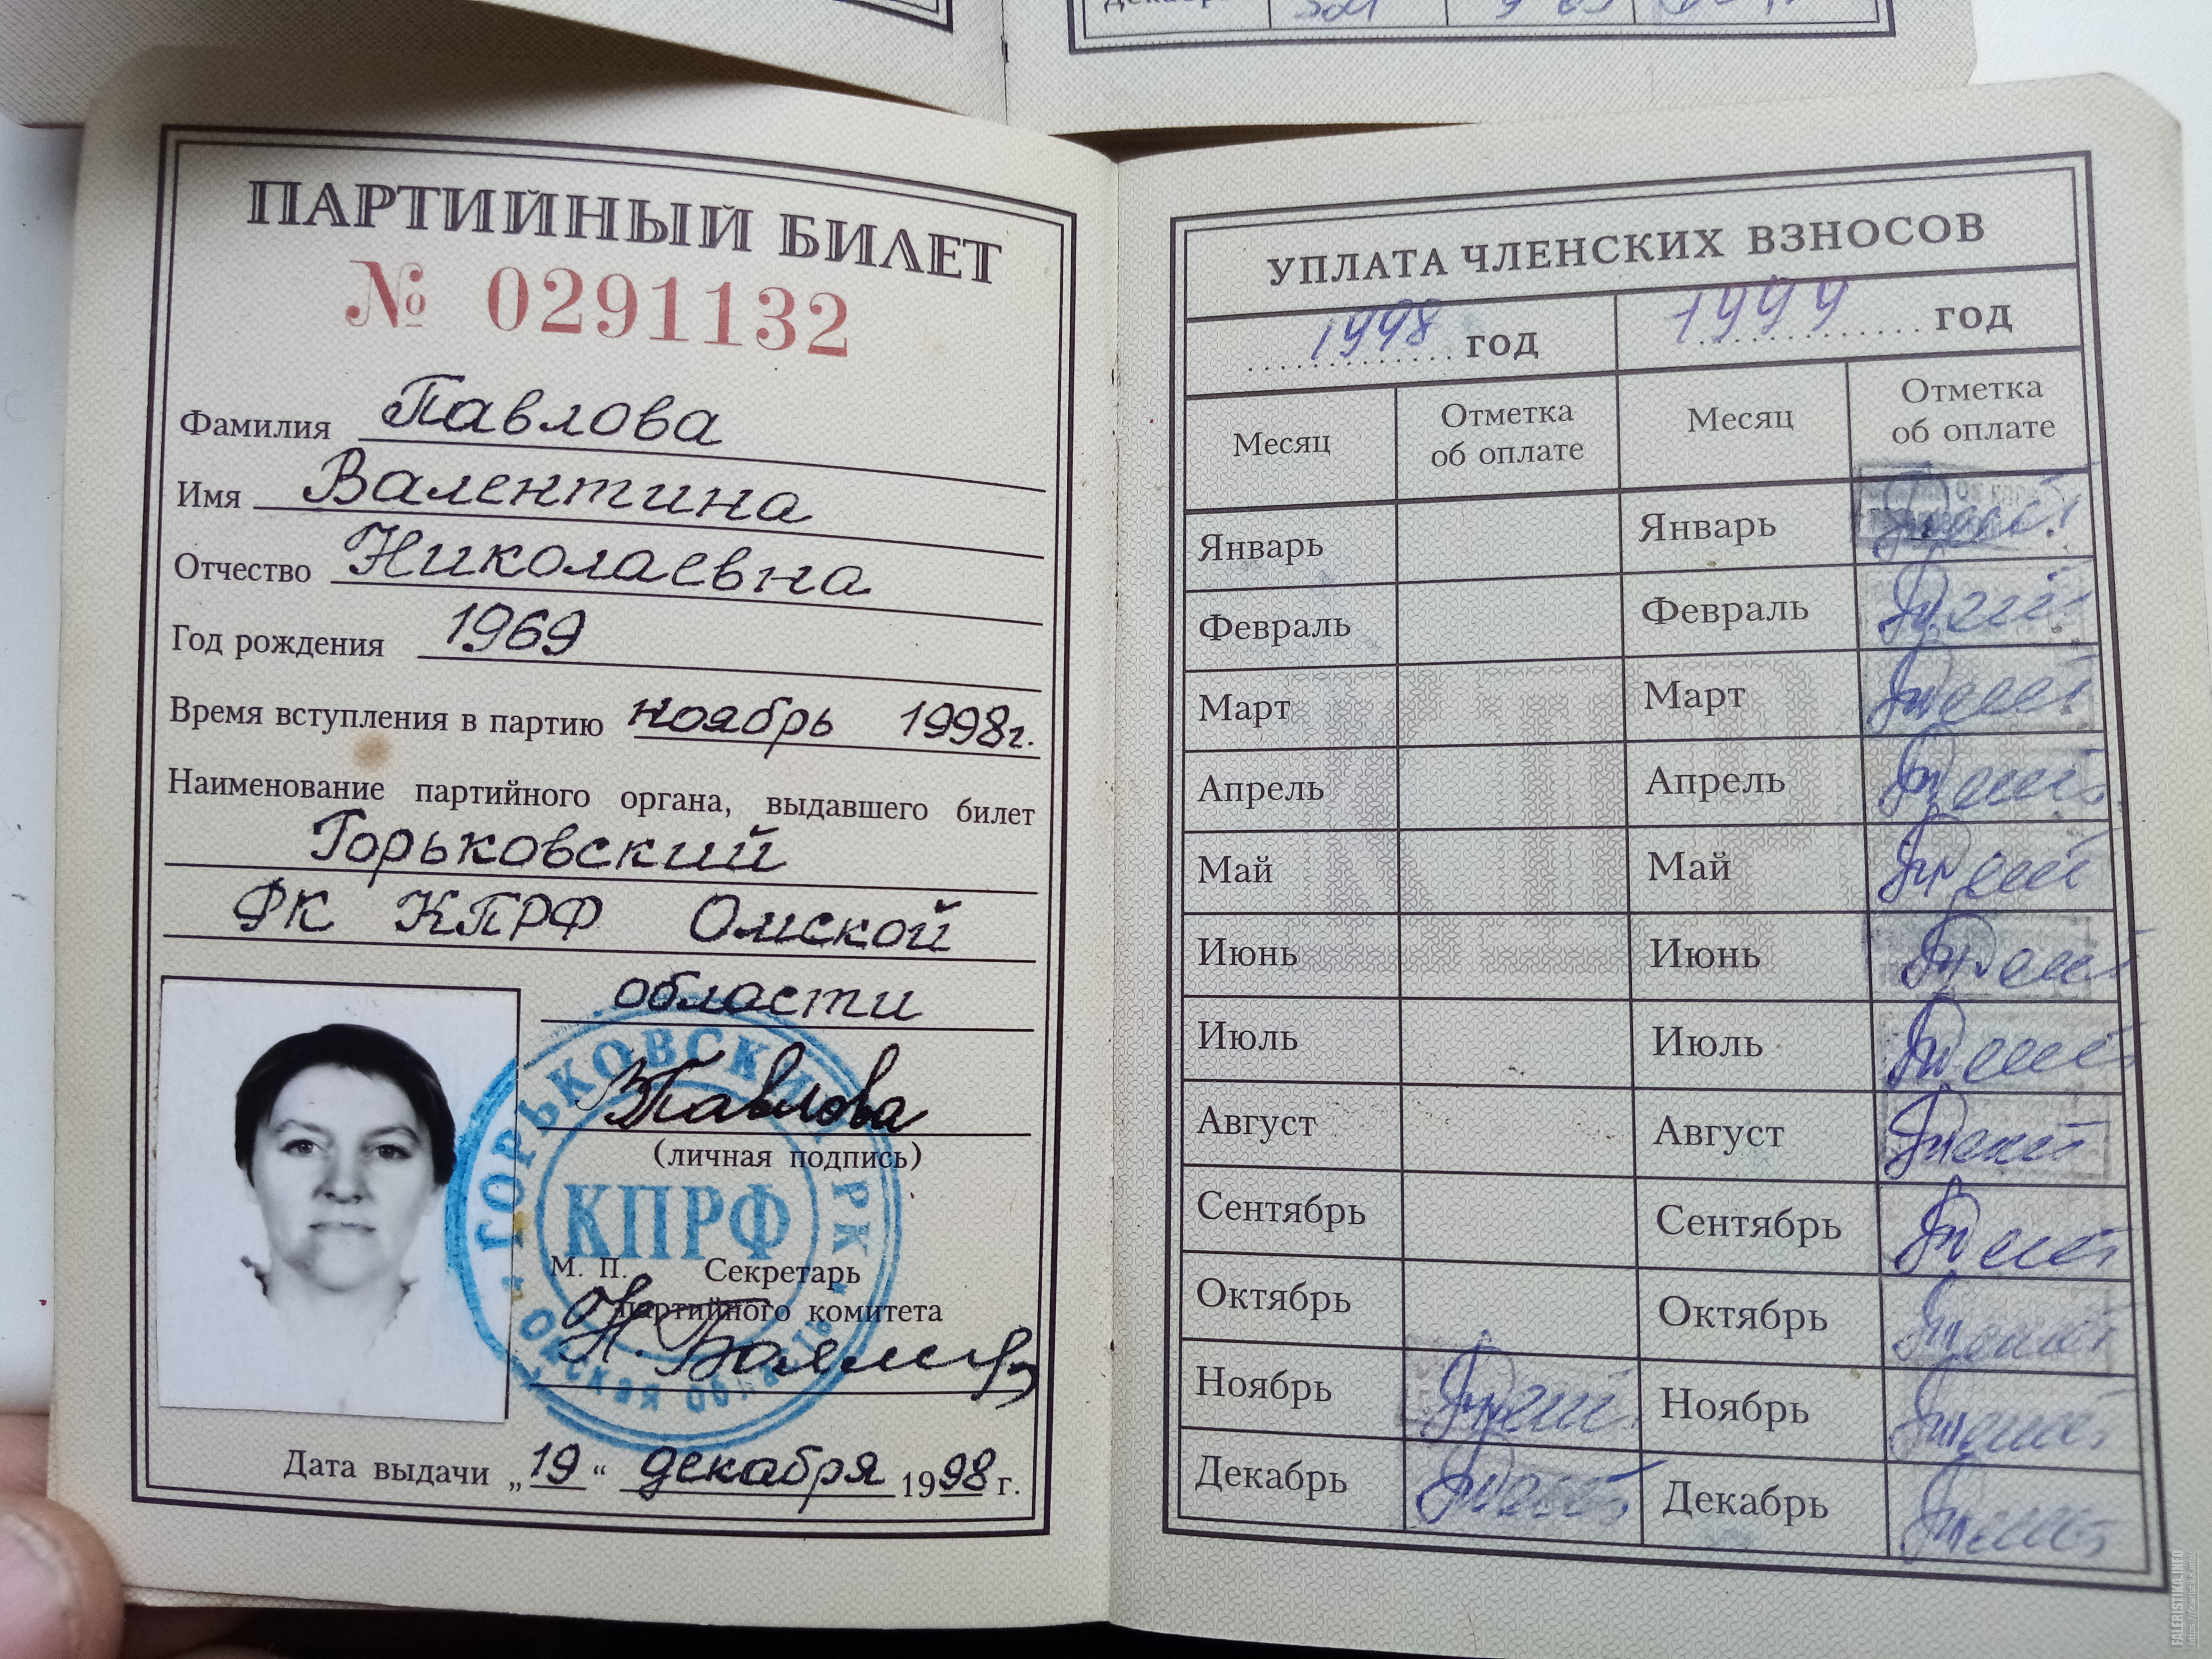 декабрь
ПАРТИЙНЫЙ БИЛЕТ
№ 0291132
Фамилия Павлова
Имя Валентина
Отчество Николаевна
Год рождения 1969
Время вступления в партию ноябрь 1998г.
Наименование партийного органа, выдавшего билет
Горьковский
РК КПРФ Омской
области
ВПавлова
(личная подпись)
ГОРЬКОВСКИЙ РК
КПРФ
Омская область
М. П. Секретарь
партийного комитета
Дата выдачи „19“ декабря 1998 г.
УПЛАТА ЧЛЕНСКИХ ВЗНОСОВ
1998 год 1999 год
Месяц Отметка об оплате Месяц Отметка об оплате
Январь Январь
Февраль Февраль
Март Март
Апрель Апрель
Май Май
Июнь Июнь
Июль Июль
Август Август
Сентябрь Сентябрь
Октябрь Октябрь
Ноябрь Ноябрь
Декабрь Декабрь
FALERISTIKA.INFO
https://faleristika.info